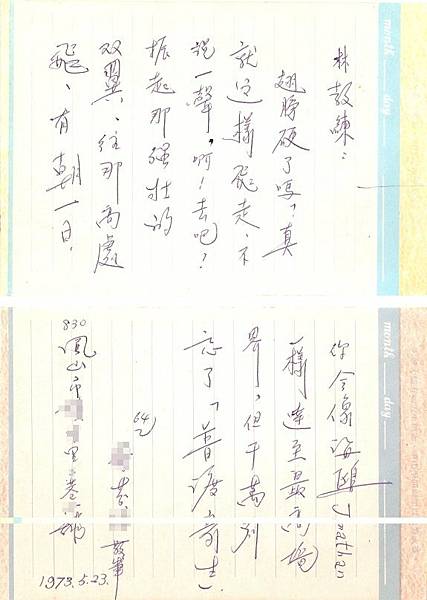 林教練:
翅膀硬了嗎,真
就這樣飛走、不
說一聲,啊!去吧!
振起那強壯的
双翼、往那高處
飛、有朝一日、
month
day
你会像海鷗Jnathan
一樣達至最高境
界,但千萬別
忘了「普渡眾生」
64乙
敬筆
830
鳳山市 里 巷 號
1973.5.23.
month
day